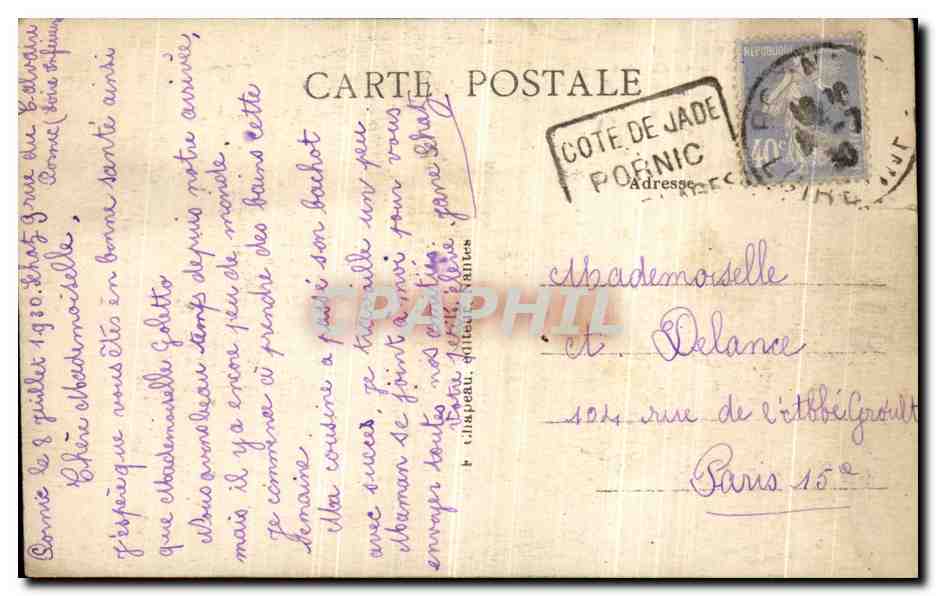 CARTE POSTALE
COTE DE JADE
PORNIC
REPUBLIQUE
40c
Adresse
Mademoiselle
et. Delance
104 rue de l'Abbé Groult
Paris 15e
Chapeau, éditeur, Nantes
CPAPHIL
Pornic le 8 juillet 1930. Lehat 9 rue du Calvaire
Pornic (Loire Inférieure
Chère Mademoiselle,
J'espère que vous êtes en bonne santé ainsi
que Mademoiselle Goletto
Nous avons beau temps depuis notre arrivée,
mais il y a encore peu de monde.
Je commence à prendre des bains cette
semaine
Ma cousine a passé son bachot
avec succès je travaille un peu
Maman se joint à moi pour vous
envoyer toutes nos amitiés
Votre petite élève Jane Lehat